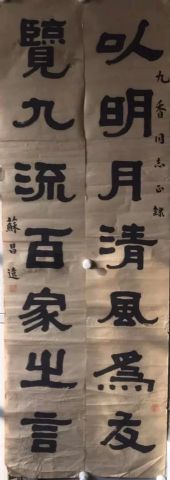 九香同志正隸
以明月清風為友
覽九流百家之言
蘇昌遠